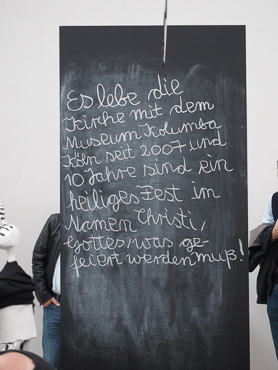 Es lebe die
Kirche mit dem
Museum Kolumba
Köln seit 2007 und
10 Jahre sind ein
heiliges Fest im
Namen Christi,
Gottes, was ge-
feiert werden muß!